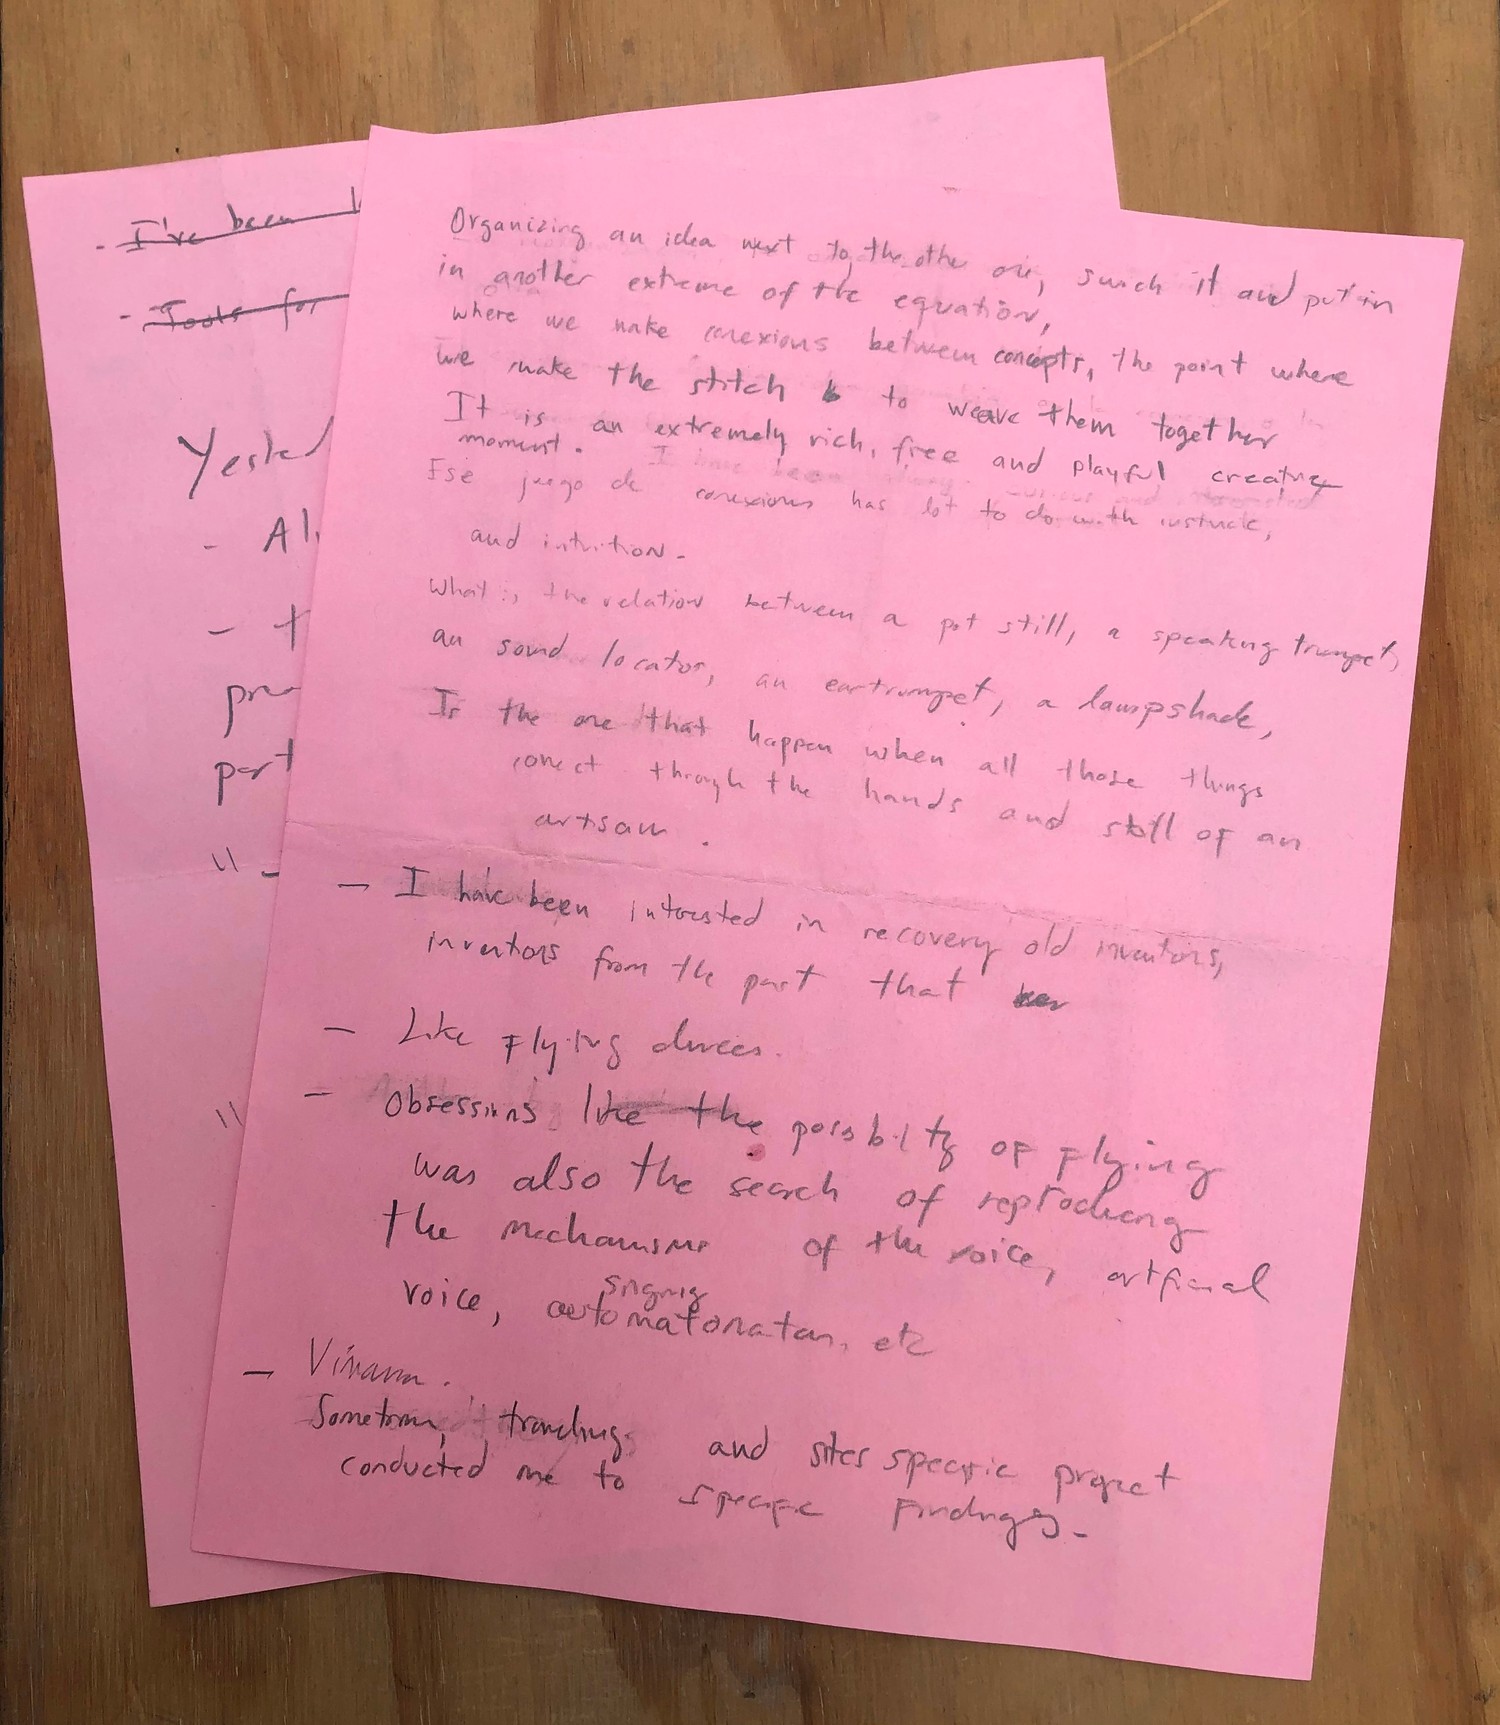 - I've been
- Tools for
Yester
- Al
- t
part
" -
"
Organizing an idea next to the other one, swich it and put in
in another extreme of the equation,
where we make conexions between concepts, the point where
we make the stitch to weave them together
It is an extremely rich, free and playful creative
moment.
Ese juego de conexions has lot to do with instinct,
and intuition.
What is the relation between a pot still, a speaking trumpet,
an sound locator, an eartrumpet, a lampshade,
Is the one that happen when all those things
conect through the hands and skill of an
artisan.
- I have been interested in recovery old inventors,
inventors from the past that
- Like flying devices.
- Obsessions like the possbility of flying
was also the search of reproducing
the mechanisms of the voice, artficial
singing
voice, automatonatan, etc
-
Sometimes, traveling and sites specific project
conducted me to specific findings-